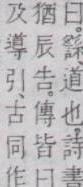 曰。繇道也。詩
猶辰告。傳皆曰
及導引、古同作